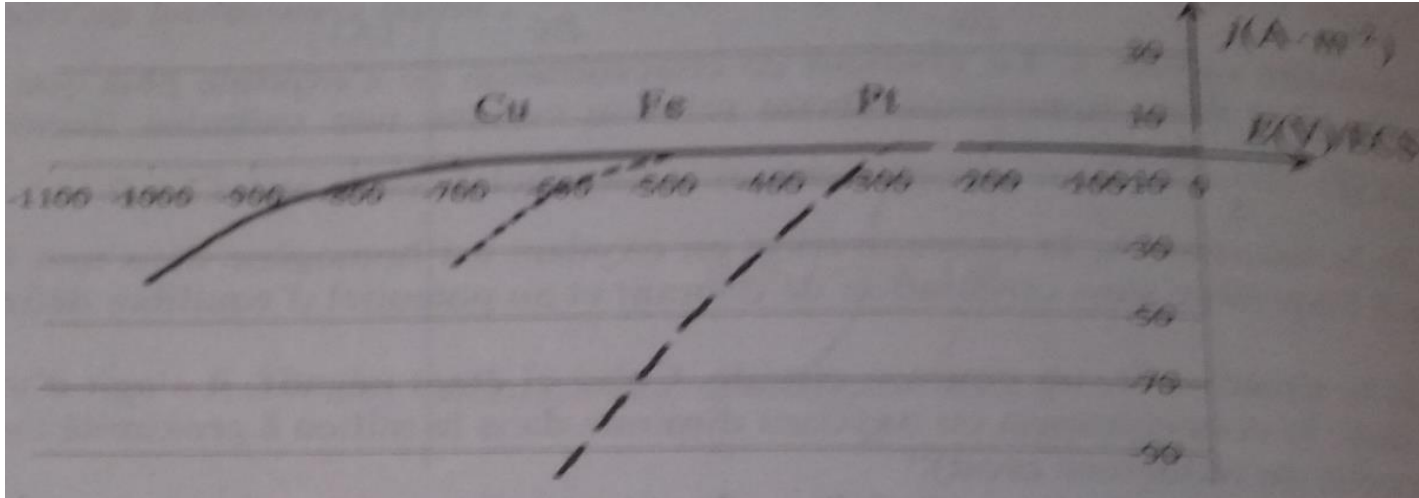 30 J(A·m²)
Cu Fe Pt
10 E(V)/ECS
-1100 -1000 -900 -800 -700 -600 -500 -400 -300 -200 -100 -10 0
-30
-50
-70
-90